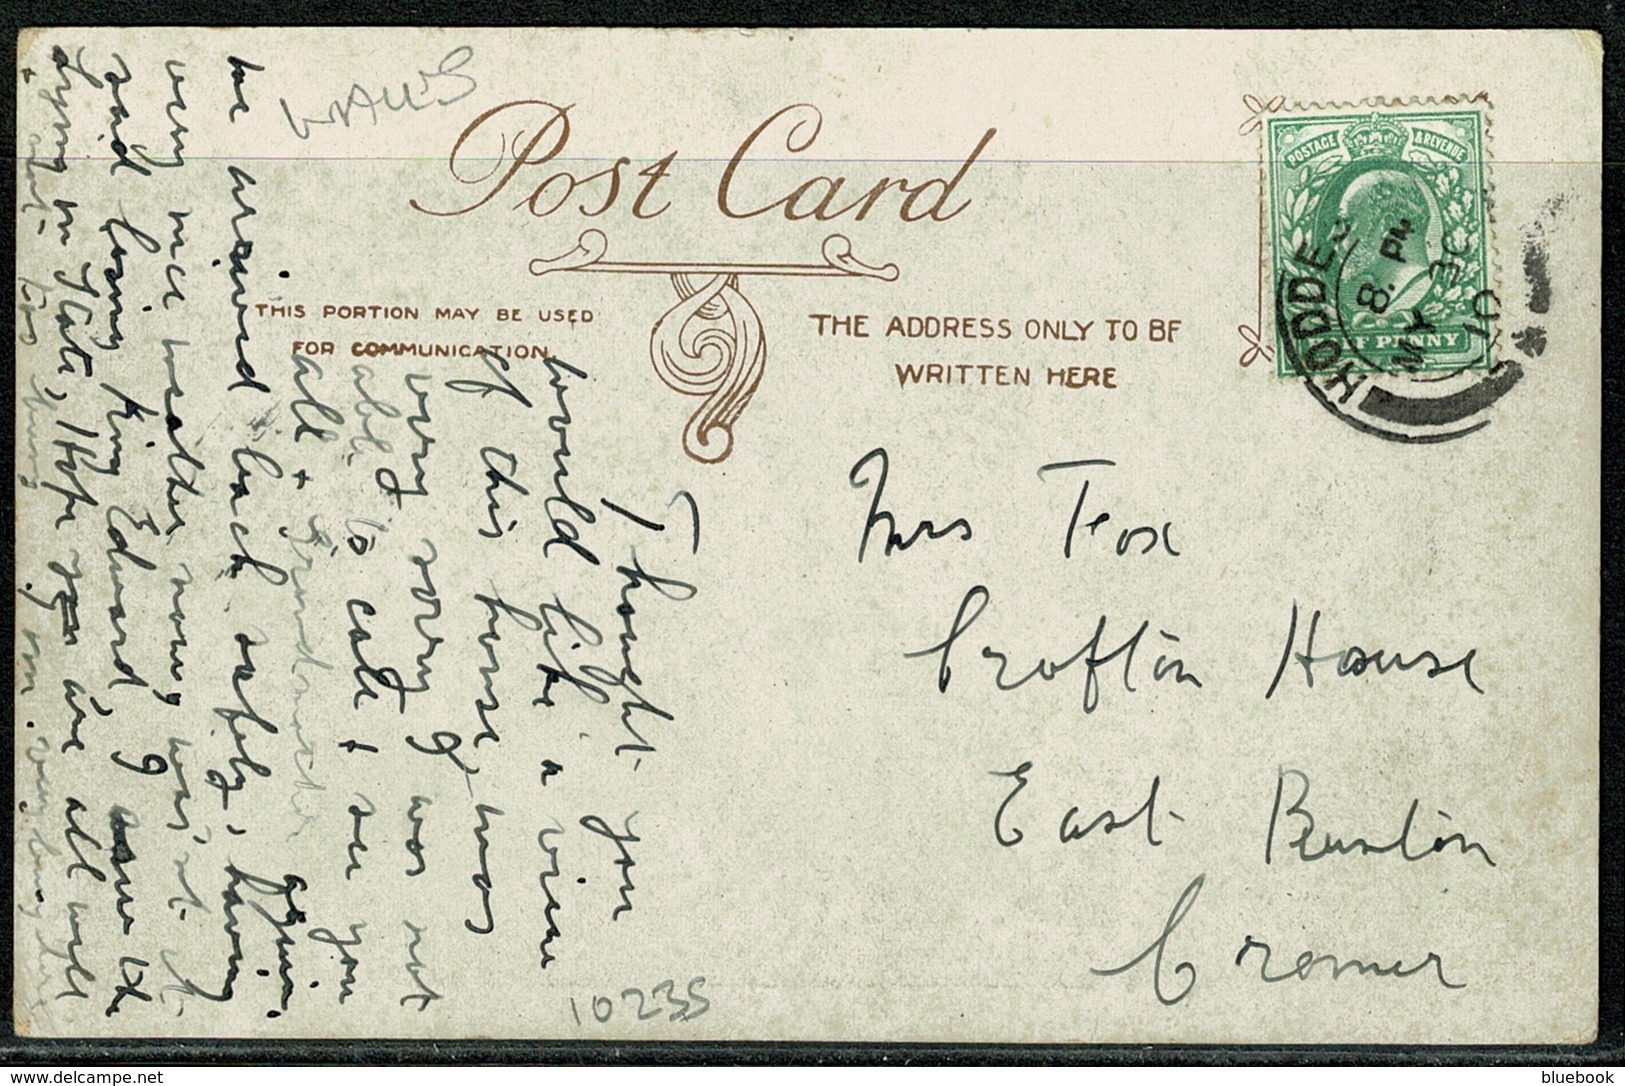 WALLS
Post Card
THIS PORTION MAY BE USED
FOR COMMUNICATION
THE ADDRESS ONLY TO BE
WRITTEN HERE
POSTAGE & REVENUE
HALF PENNY
HODDE
8. PM
MY 30
10
Mrs Fox
Crofton House
East Runton
Cromer
Thought you
would like a view
of this house, was
very sorry I was not
able to call & see you
all & Grandmother again.
We arrived back safely, having
very nice weather, was it
said King Edward, I the
Lying in State, Hope you are all well
10235
delcampe.net
bluebook